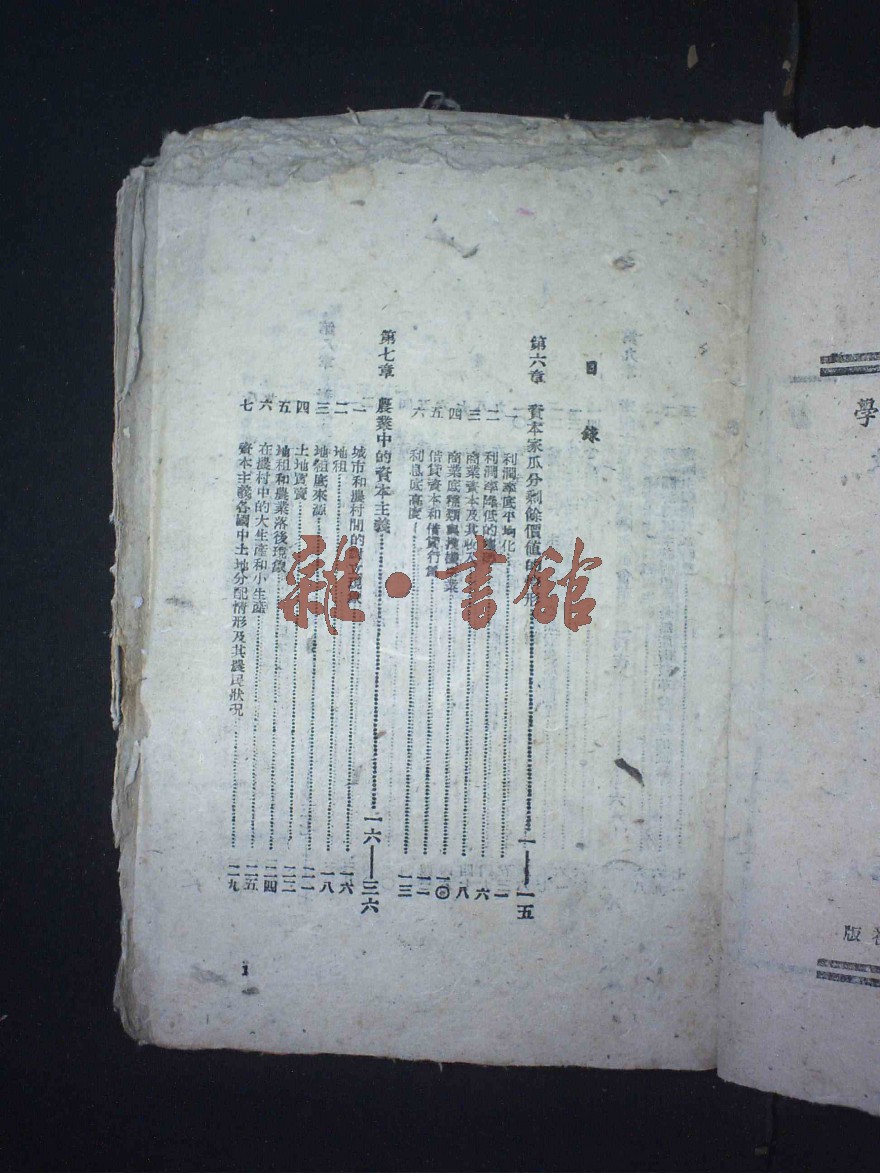 目錄
第六章 資本家瓜分剩餘價值的情形……一——一五
一 利潤率底平均化……一
二 利潤率降低的……六
三 商業資本及其……八
四 商業底種類與投機……業……一〇
五 借貸資本和借貸行……一二
六 利息底高度……一三
第七章 農業中的資本主義……一六——三六
一 城市和農村間的……一六
二 地租……一八
三 地租底來源……二一
四 土地買賣……二三
五 地租和農業落後現象……二四
六 在農村中的大生產和小生產……二五
七 資本主義各國中土地分配情形及其農民狀況……二九
1
雜·書館
學
版